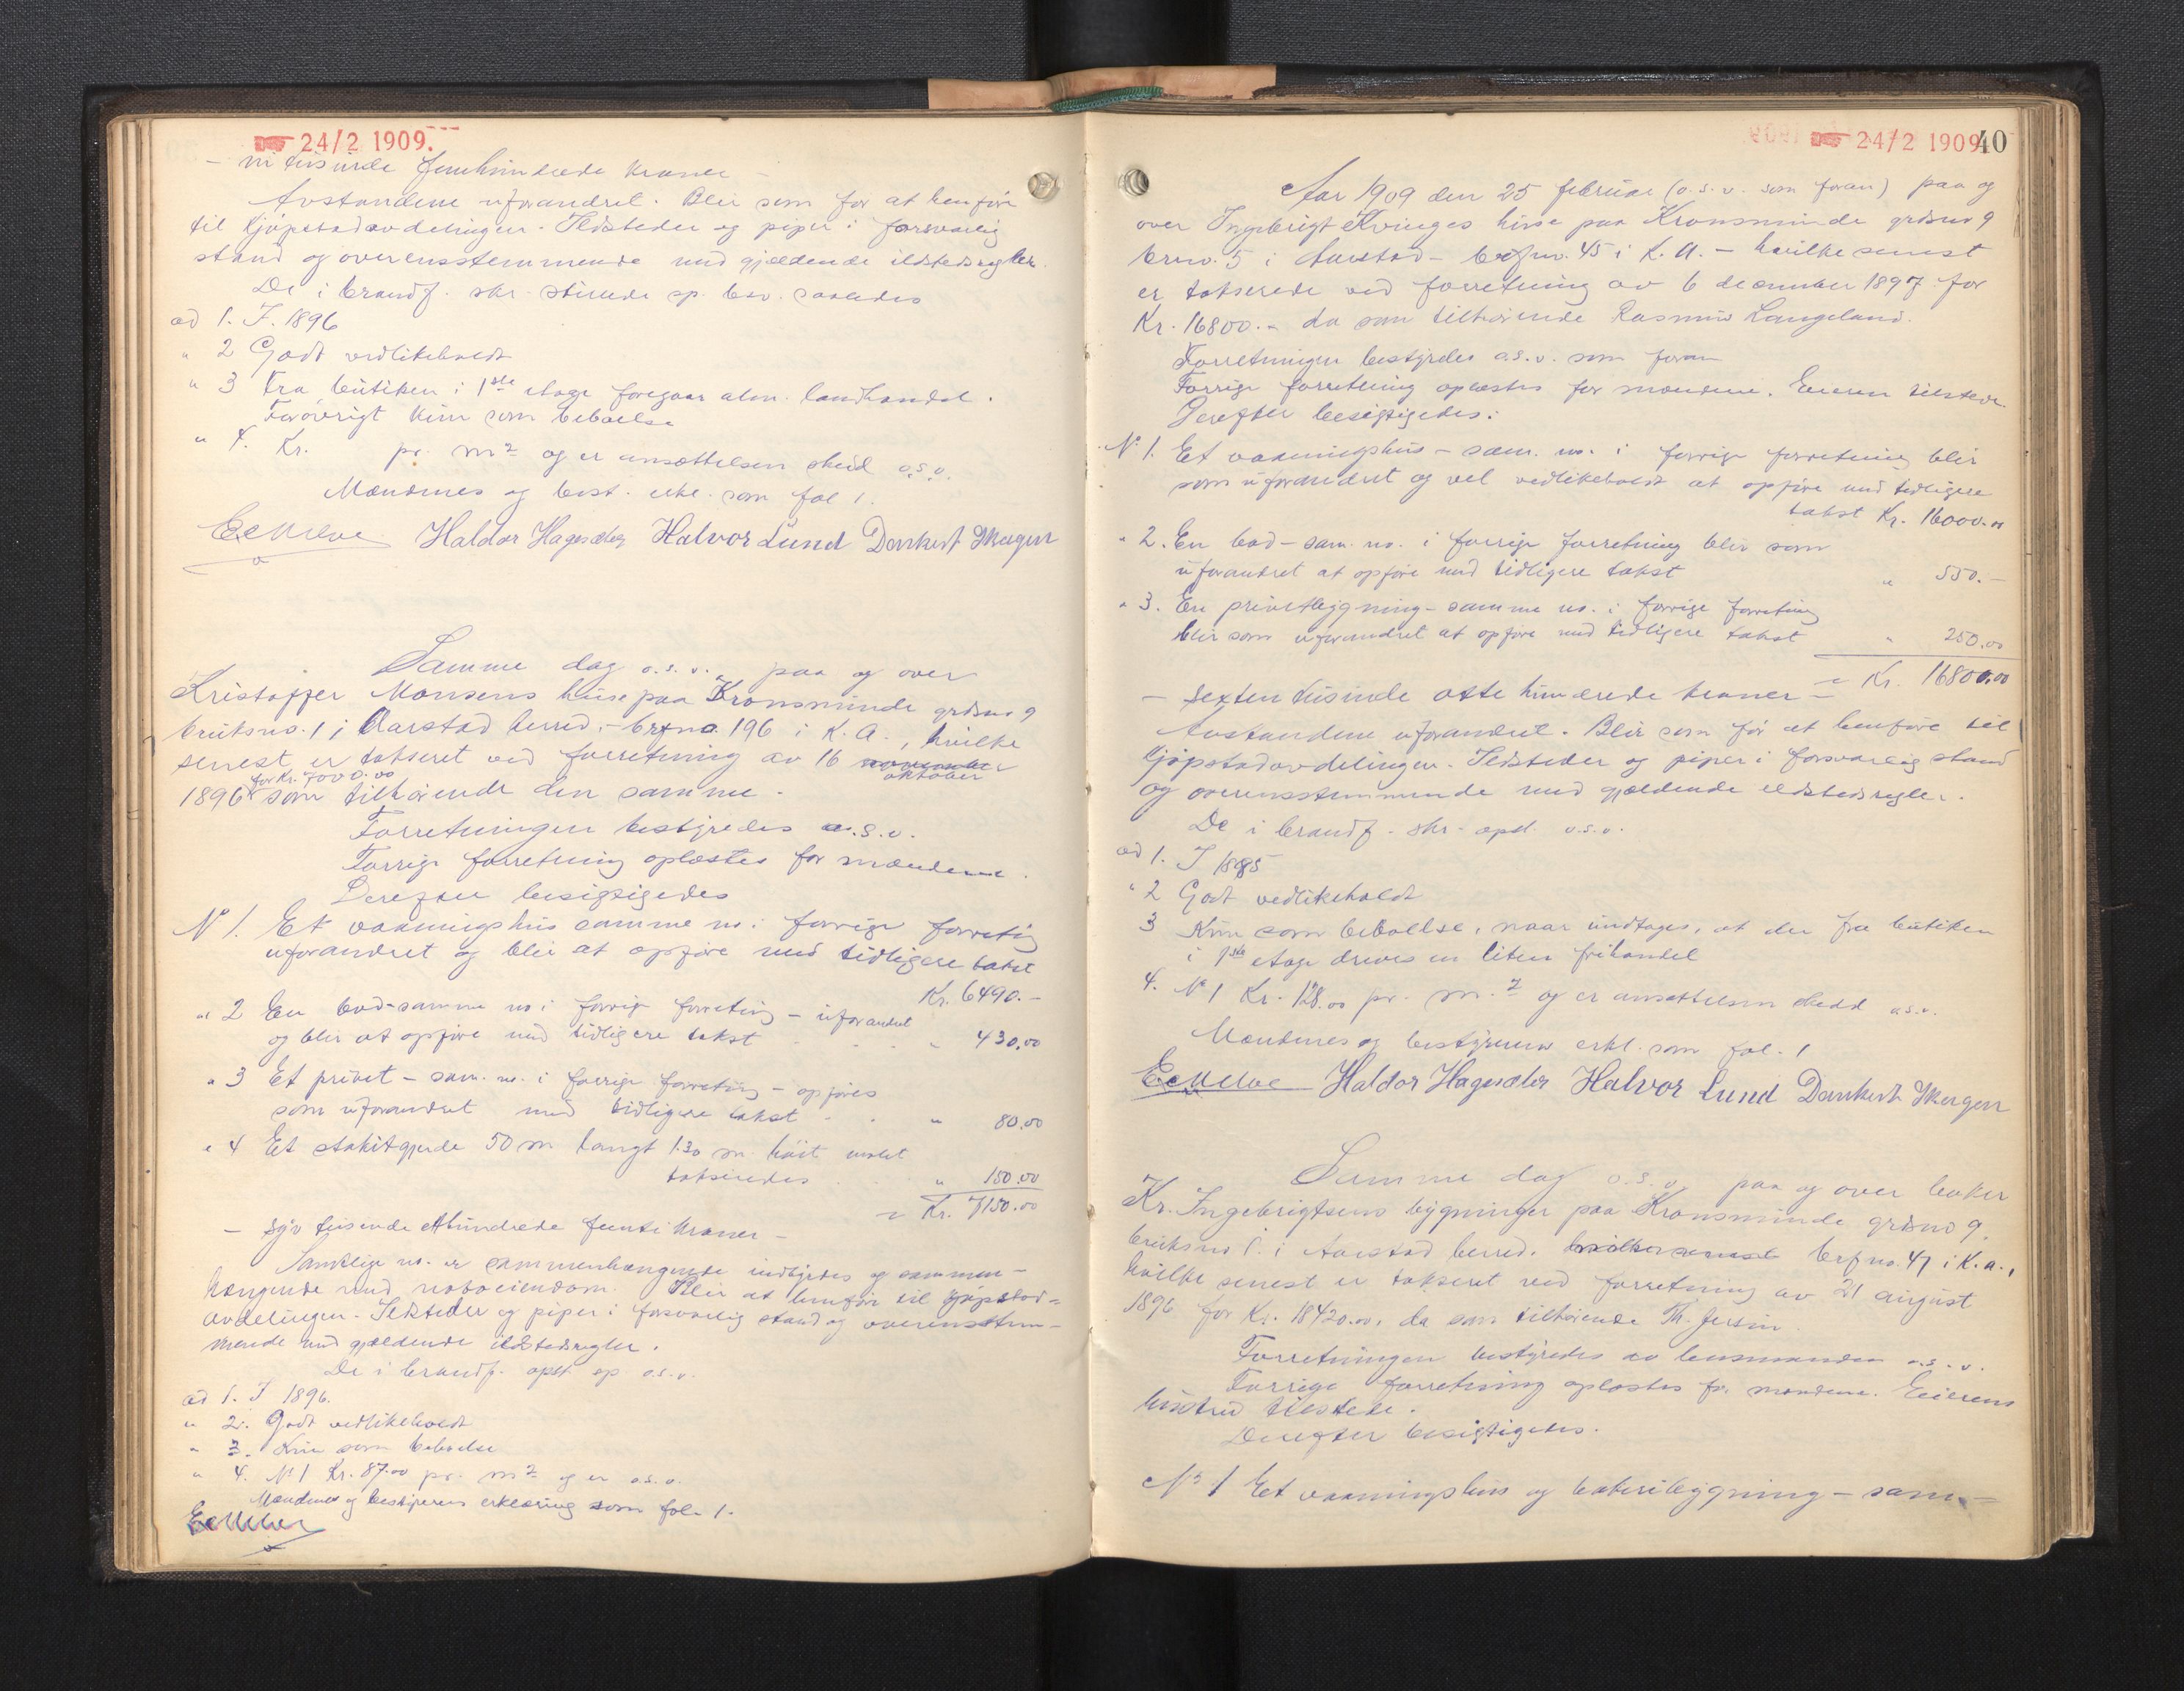 24/2 1909.
– ni tusinde femhundrede kroner –
Avstandene uforandret. Blir som før at henføre
til kjøpstadavdelingen. Ildsteder og piper i forsvarlig
stand og overensstemmende med gjældende ildstedsregler.
De i brandf. skr. stillede sp. besv. saaledes
ad 1. I. 1896
" 2 Godt vedlikeholdt
" 3 Fra butiken i 1ste etage foregaar alm. landhandel.
Forøvrigt kun som beboelse
" 4. Kr. pr. m2 og er ansættelsen skeid o.s.v.
Mændenes og best. erkl. som fol 1.
Haldor Hagesæter Halvor Lund Dankert Skagen
Samme dag o.s.v. paa og over
Kristoffer Monsens huse paa Kronsminde grdsno 9
bruksno. 1 i Aarstad herred, – brfno. 196 i K.A., hvilke
senest er takseret ved forretning av 16 november
oktober
for Kr. 7000.00
1896 som tilhørende den samme.
Forretningen bestyredes o.s.v.
Forrige forretning oplæstes for mændene.
Derefter besigtigedes
No 1. Et vaaningshus samme no. i forrige forretning
uforandret og blir at opføre med tidligere takst
Kr. 6490.–
" 2 En bod – samme no i forrige forretning – uforandret
og blir at opføre med tidligere takst " 430.00
" 3 Et privet – sam. no. i forrige forretning – opføres
som uforandret med tidligere takst . . " 80.00
" 4 Et stakitgjerde 50 m langt 1.30 m. høit malet
takseredes . " 150.00
= Kr. 7150.00
– syv tusinde ethundrede femti kroner –
Samtlige no. er sammenhængende indbyrdes og sammen-
hængende med naboeiendom. Blir at henføre til kjøpstad-
avdelingen. Ildsteder og piper i forsvarlig stand og overensstem-
mende med gjældende ildstedsregler.
De i brandf. opst. sp o.s.v.
ad 1. I 1896.
" 2. Godt vedlikeholdt
" 3. Kun som beboelse
" 4. No 1 Kr. 87.00 pr. m2 og er o.s.v.
Mændenes og bestyrerens erklæring som fol. 1.
24/2 1909
40
Aar 1909 den 25 februar (o.s.v. som foran) paa og
over Ingebrigt Kvinges huse paa Kronsminde grdsno 9
brno. 5 i Aarstad – brfno. 45 i K.A. – hvilke senest
er takserede ved forretning av 6 december 1897 for
Kr. 16800.– da som tilhørende Rasmus Langeland.
Forretningen bestyredes o.s.v. som foran
Forrige forretning oplæstes for mændene. Eieren tilstede.
Derefter besigtigedes:
No 1. Et vaaningshus – sam. no. i forrige forretning blir
som uforandret og vel vedlikeholdt at opføre med tidligere
takst Kr. 16000.00
" 2. En bod – sam. no. i forrige forretning blir som
uforandret at opføre med tidligere takst " 550.–
" 3. En privetbygning – samme no. i forrige forretning
blir som uforandret at opføre med tidligere takst " 250.00
= Kr. 16800.00
– sexten tusinde otte hundrede kroner –
Avstandene uforandret. Blir som før at henføre til
kjøpstadavdelingen. Ildsteder og piper i forsvarlig stand
og overensstemmende med gjældende ildstedsregler.
De i brandf. skr. opst. o.s.v.
ad 1. I 1895
" 2 Godt vedlikeholdt
3 Kun som beboelse, naar undtages, at der fra butiken
i 1ste etage drives en liten frihandel
4. No 1 Kr. 128.00 pr. m.2 og er ansættelsen skedd o.s.v.
Mændenes og bestyreren erkl. som fol. 1
Haldor Hagesæter Halvor Lund Dankert Skagen
Samme dag o.s.v. paa og over baker
Kr. Ingebrigtsens bygninger paa Kronsminde grdsno 9.
bruksno 1. i Aarstad herred. hvilke senest brfno. 47 i K.A.,
hvilke senest er takseret ved forretning av 21 august
1896 for Kr. 18420.00. da som tilhørende Th. Jersin.
Forretningen bestyredes av lensmanden o.s.v.
Forrige forretning oplæstes for mændene. Eierens
hustru tilstede.
Derefter besigtigedes.
No 1 Et vaaningshus og bakeribygning – sam. –